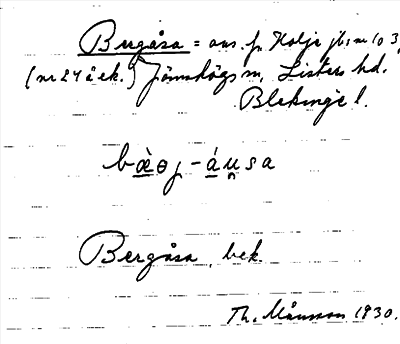 Bergåsa = ans. fr. Holje jb: nr 10 3,
(nr 24 å ek.) Jämshögs sn, Listers hd.
Blekinge l.
bæ̀ɵɟ-áu̯sa
Bergåsa, bek.
Th. Månsson 1930.